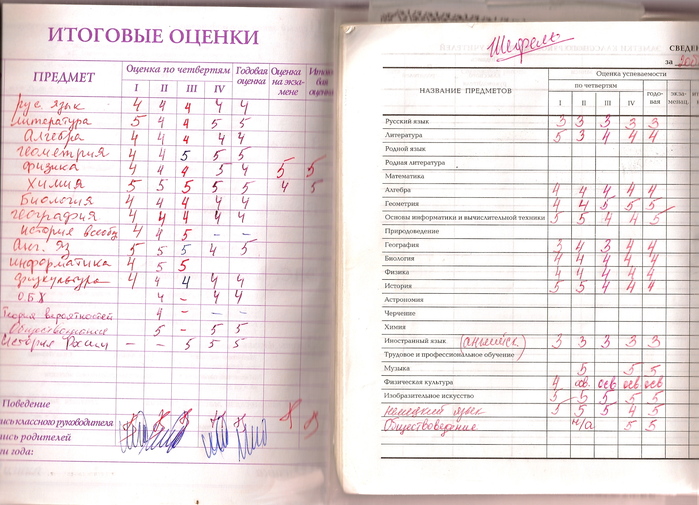 ИТОГОВЫЕ ОЦЕНКИ
ПРЕДМЕТ Оценка по четвертям Годовая оценка Оценка на экзамене
I II III IV
рус. язык 4 4 4 4 4
литература 5 4 4 5 5
Алгебра 4 4 4 4 4
геометрия 4 4 5 5 5
физика 4 4 4 5 4 5 5
Химия 5 5 5 5 5 4 5
Биология 4 4 4 4 4
география 4 4 4 4 4
история всеобщ 4 4 5 – –
Анг. яз 5 5 5 4 5
информатика 4 5 5
физкультура 4 4 4 4 4
ОБЖ 4 – 4 4
Теория вероятностей 4 – – –
Обществознание 5 – 5 5
История России – – 5 5 5
Поведение
пись классного руководителя
пись родителей
и года:
Шефель
СВЕДЕН
за 200
НАЗВАНИЕ ПРЕДМЕТОВ
Оценка успеваемости
по четвертям годовая экзаменац.
I II III IV
Русский язык 3 3 3 3 3
Литература 5 3 4 4 4
Родной язык
Родная литература
Математика
Алгебра 4 4 4 4 4
Геометрия 4 4 5 5 5
Основы информатики и вычислительной техники 5 5 4 4 5
Природоведение
География 3 4 3 4 4
Биология 4 4 4 4 4
Физика 4 4 4 4 4
История 5 5 4 4 4
Астрономия
Черчение
Химия
Иностранный язык (английск) 3 3 3 3 3
Трудовое и профессиональное обучение
Музыка 5 5 5
Физическая культура 4 осв. осв осв осв
Изобразительное искусство 5 5 5 5 5
немецкий язык 5 5 5 4 5
Обществоведение н/а 5 5